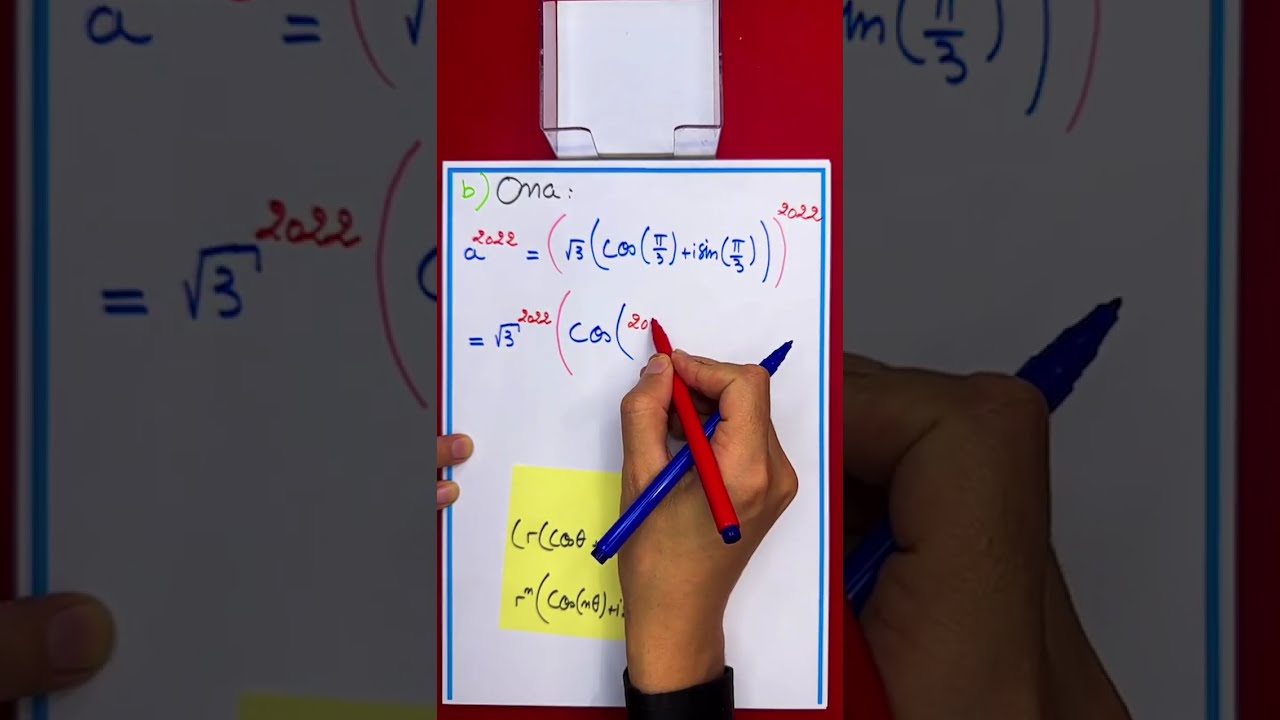 b) Ona:
a^2022 = (√3(cos(π/3)+isin(π/3)))^2022
= √3^2022 (cos(20
(r(cosθ +
r^n(cos(nθ)+i